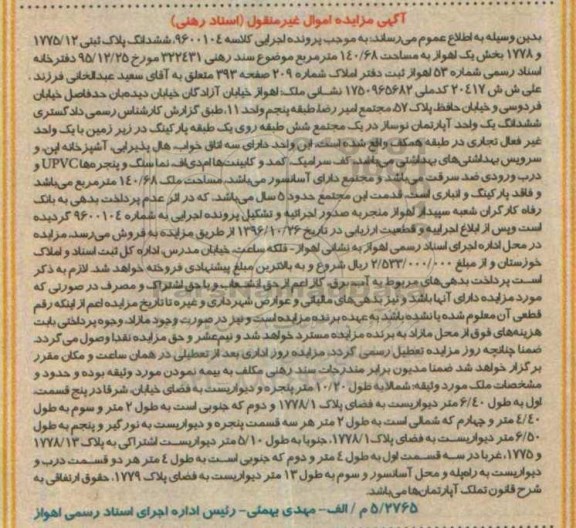 آگهی مزایده اموال غیرمنقول (اسناد رهنی)
بدین وسیله به اطلاع عموم می‌رساند: به موجب پرونده اجرایی کلاسه ۹۶۰۰۱۰۴، ششدانگ پلاک ثبتی ۱۷۷۵/۱۲
و ۱۷۷۸ بخش یک اهواز به مساحت ۱۴۰/۶۸ مترمربع موضوع سند رهنی ۳۲۲۴۳۱ مورخ ۹۵/۱۲/۲۵ دفترخانه
اسناد رسمی شماره ۵۳ اهواز ثبت دفتر املاک شماره ۲۰۹ صفحه ۳۹۳ متعلق به آقای سعید عبدالخانی فرزند
علی ش ش ۲۰۴۱۷ کدملی ۱۷۵۰۹۶۵۶۸۲ نشانی ملک: اهواز خیابان آزادگان خیابان دیده‌بان حدفاصل خیابان
فردوسی و خیابان حافظ، پلاک ۵۷، مجتمع امیر رضا، طبقه پنجم واحد ۱۱، طبق گزارش کارشناس رسمی دادگستری
ششدانگ یک واحد آپارتمان نوساز در یک مجتمع شش طبقه روی یک طبقه پارکینگ در زیر زمین با یک واحد
غیر فعال تجاری در طبقه همکف واقع شده است. این واحد دارای سه اتاق خواب، هال پذیرایی، آشپزخانه اپن، و
سرویس بهداشتی‌های بهداشتی می‌باشد. کف سرامیک، کمد و کابینت‌ها ام‌دی‌اف، نما سنگ و پنجره‌ها UPVC و
درب ورودی ضد سرقت می‌باشد و مجتمع دارای آسانسور می‌باشد. مساحت ملک ۱۴۰/۶۸ مترمربع می‌باشد
و فاقد پارکینگ و انباری است. قدمت این مجتمع حدود ۵ سال می‌باشد. که در اثر عدم پرداخت بدهی به بانک
رفاه کارگران شعبه سپیدار اهواز منجر به صدور اجرائیه و تشکیل پرونده اجرایی به شماره ۹۶۰۰۱۰۴ گردیده
است و پس از ابلاغ اجراییه و قطعیت ارزیابی در تاریخ ۱۳۹۶/۱۰/۲۶ از طریق مزایده به فروش می‌رسد، مزایده
در محل اداره اجرای اسناد رسمی اهواز به نشانی اهواز - فلکه ساعت، خیابان مدرس، اداره کل ثبت اسناد و املاک
خوزستان و از مبلغ ۲/۵۳۳/۰۰۰/۰۰۰ ریال شروع و به بالاترین مبلغ پیشنهادی فروخته خواهد شد. لازم به ذکر
است پرداخت بدهی‌های مربوط به آب، برق، گاز اعم از حق انشعاب و یا حق اشتراک و مصرف در صورتی که
مورد مزایده دارای آنها باشد و نیز بدهی‌های مالیاتی و عوارض شهرداری و غیره تا تاریخ مزایده اعم از اینکه رقم
قطعی آن معلوم شده یا نشده باشد به عهده برنده مزایده است و نیز در صورت وجود مازاد، وجوه پرداختی بابت
هزینه‌های فوق از محل مازاد به برنده مزایده مسترد خواهد شد و نیم‌عشر و حق مزایده نقدا وصول می‌گردد.
ضمنا چنانچه روز مزایده تعطیل رسمی گردد، مزایده روز اداری بعد از تعطیلی در همان ساعت و مکان مقرر
برگزار خواهد شد. ضمنا مدیون برابر مندرجات سند رهنی مکلف به بیمه نمودن مورد وثیقه بوده و حدود و
مشخصات ملک مورد وثیقه: شمالا به طول ۱۰/۲۰ متر پنجره و دیواریست به فضای خیابان، شرقا در پنج قسمت،
اول به طول ۶/۴۰ متر دیواریست به فضای پلاک ۱۷۷۸/۱ و دوم که جنوبی است به طول ۲ متر و سوم به طول
۴/۴۰ متر و چهارم که شمالی است به طول ۲ متر هر سه قسمت پنجره و دیواریست به نورگیر و پنجم به طول
۶/۵۰ متر دیواریست به فضای پلاک ۱۷۷۸/۱، جنوبا به طول ۵/۱۰ متر دیواریست اشتراکی به پلاک ۱۷۷۸/۱۳
و ۱۷۷۵، غربا در سه قسمت اول به طول ۴ متر و دوم که جنوبی است به طول ۴ متر هر دو قسمت درب و
دیواریست به راه‌پله و محل آسانسور و سوم به طول ۱۳ متر دیواریست به فضای پلاک ۱۷۷۹، حقوق ارتفاقی به
شرح قانون تملک آپارتمان‌ها می‌باشد.
۵/۲۷۶۵ م / الف - مهدی بهمئی - رئیس اداره اجرای اسناد رسمی اهواز